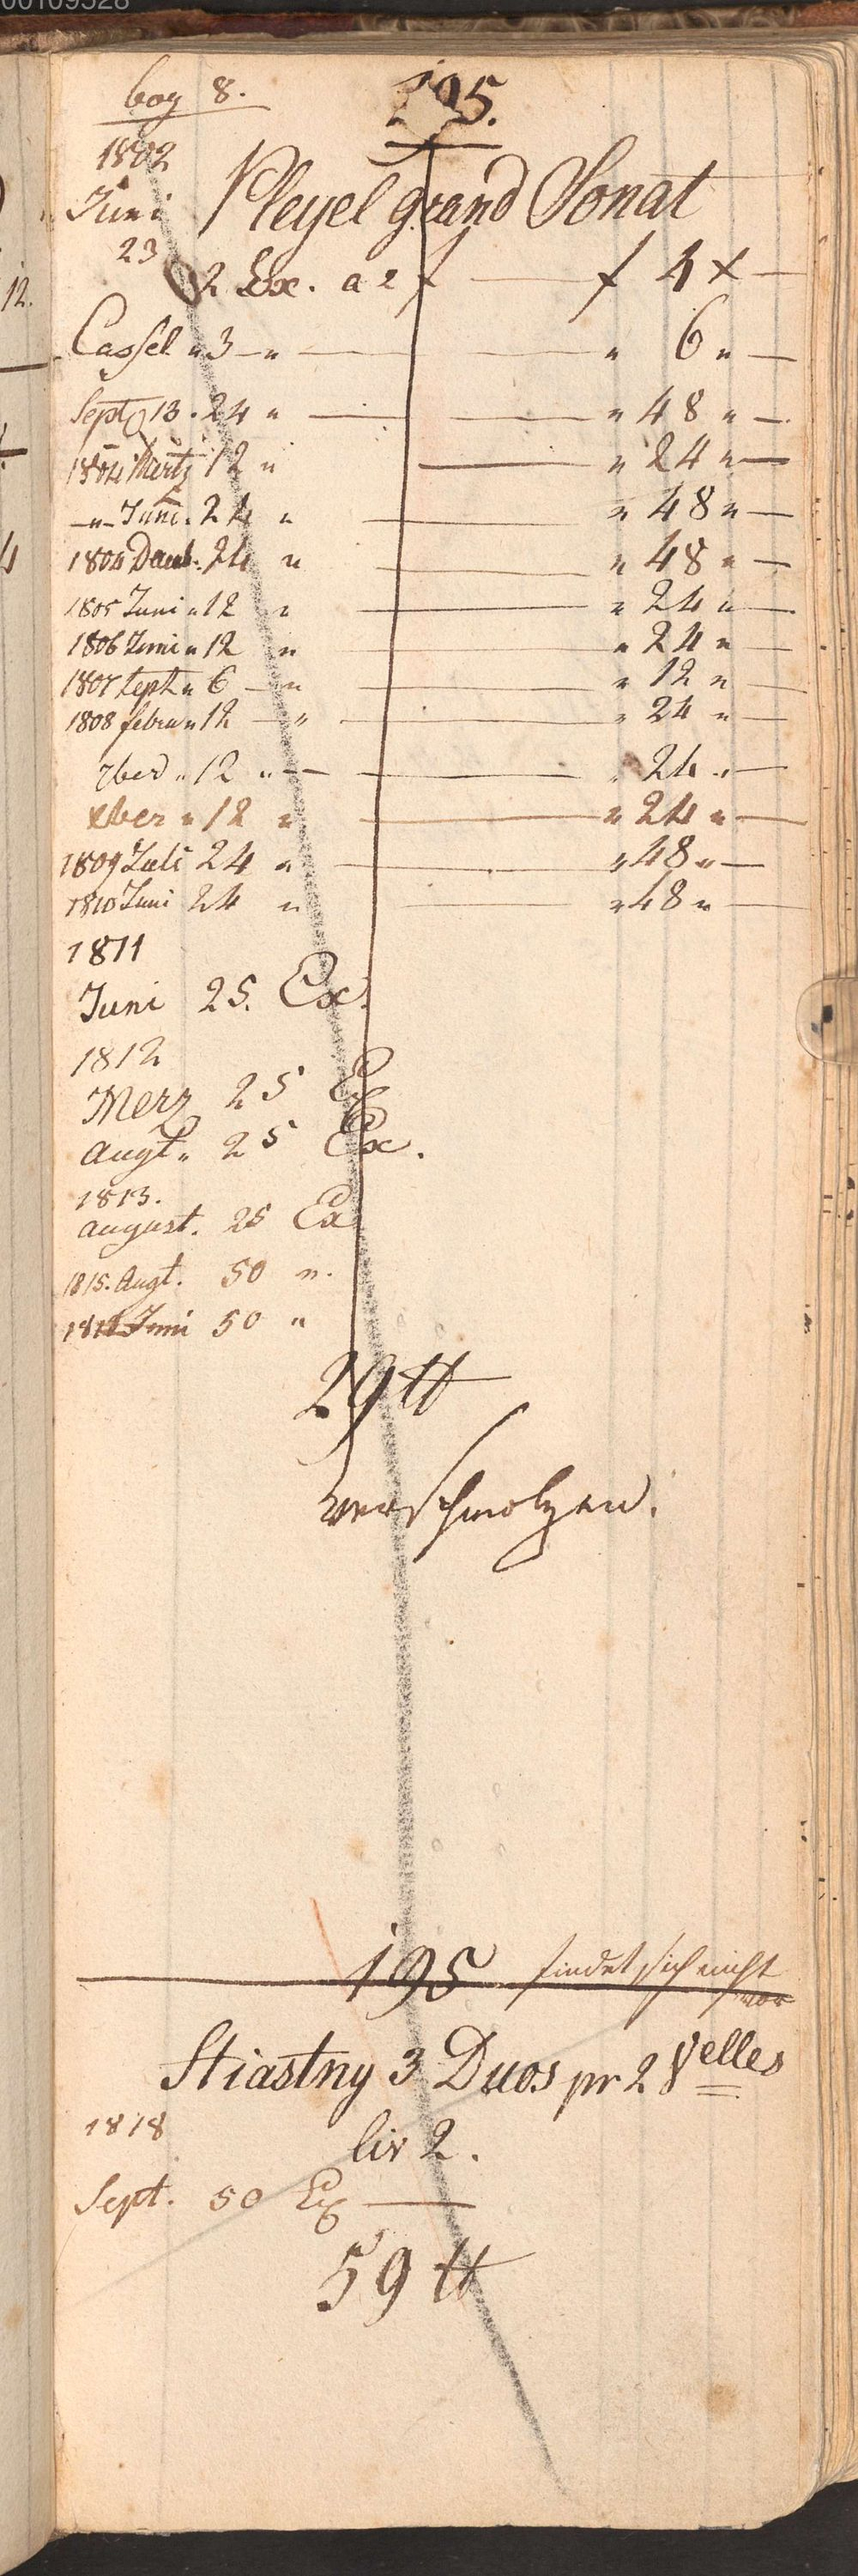 00109528
bog 8.
195.
1802
Juni
23
Pleyel grand Sonat
2 Ex. a 2 f — f 4 x —
Cassel " 3 — " — " 6 " —
Sept 13. 24 " — " 48 " —
1804 Mertz 12 " — " 24 " —
—"— Juni. 24 " — " 48 " —
1804 24 " — " 48 " —
1805 Juni " 12 " — " 24 " —
1806 Juni " 12 " — " 24 " —
1807 Sept " 6 — " — " 12 " —
1808 febru " 12 — " — " 24 " —
" 12 " — " 24 " —
xber " 12 " — " 24 " —
1809 Juli 24 " — " 48 " —
1810 Juni 24 " — " 48 " —
1811
Juni 25. Ex.
1812
Merz 25 Ex
Augt. " 25 Ex.
1813.
August. 25 Ex
1815. Augt. 50 ".
Juni 50 "
29 tt
verschmolzen.
195 findet sich nicht
vor
Stiastny 3 Duos pr 2 Velles
liv 2.
1818
Sept. 50 Ex —
59 tt
12.
4